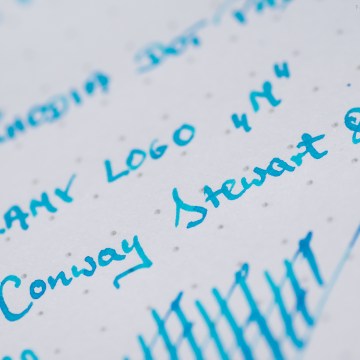 DOT
LAMY LOGO "M"
Conway Stewart